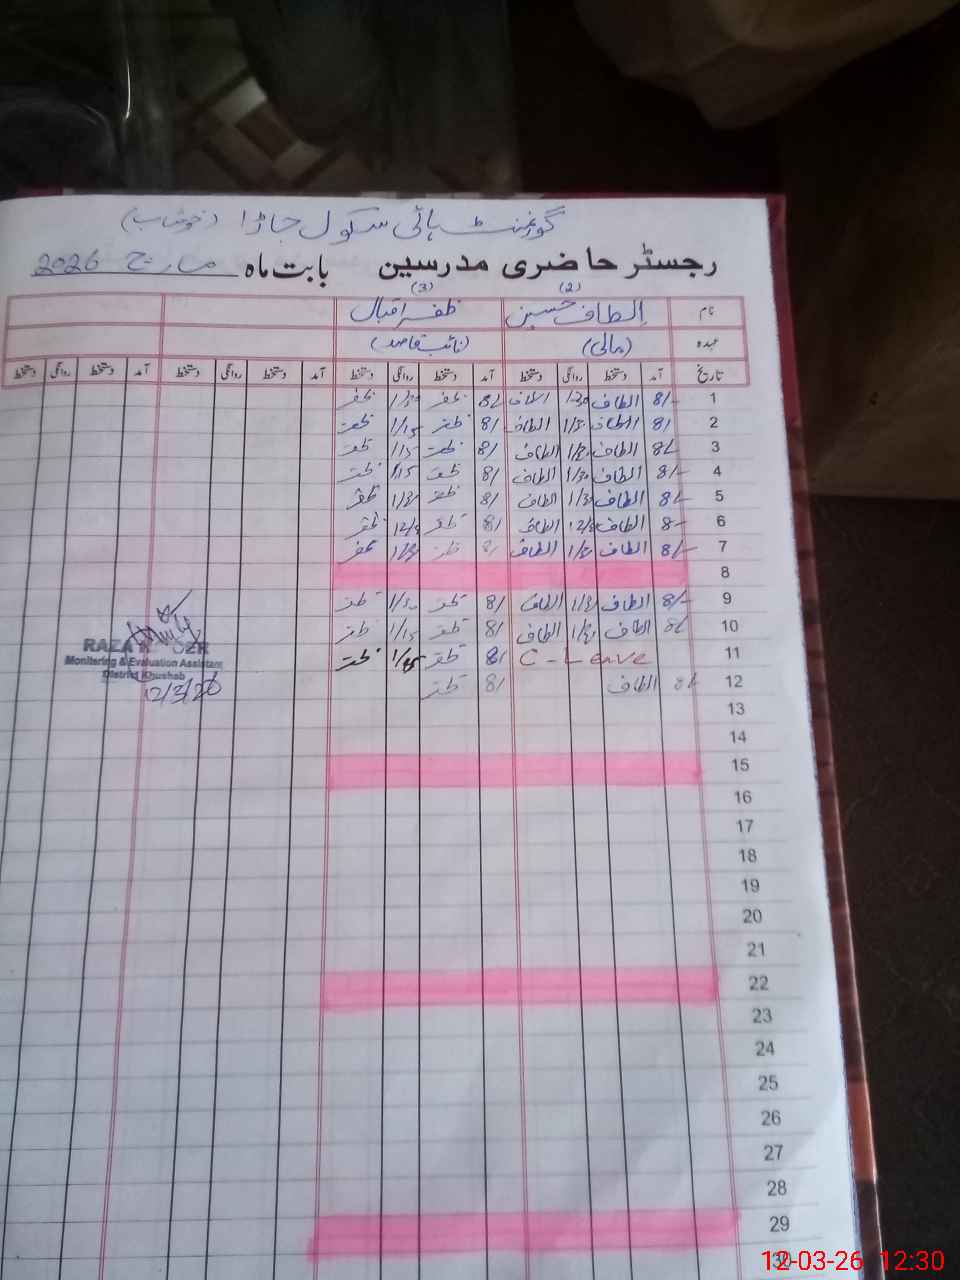 گورنمنٹ ہائی سکول جاڑا (خوشاب)
رجسٹر حاضری مدرسین بابت ماہ مارچ 2026
(2) (3)
نام الطاف حسین ظفر اقبال
عہدہ (مالی) (نائب قاصد)
تاریخ آمد دستخط روانگی دستخط آمد دستخط روانگی دستخط آمد دستخط روانگی دستخط آمد دستخط روانگی دستخط
1 8/- الطاف 1/30 الطاف 8/ ظفر 1/30 ظفر
2 8/ الطاف 1/15 الطاف 8/ ظفر 1/15 ظفر
3 8/ الطاف الطاف 8/ ظفر 1/15 ظفر
4 8/- الطاف 1/30 الطاف 8/ ظفر 1/15 ظفر
5 8/- الطاف 1/30 الطاف 8/ ظفر ظفر
6 8/- الطاف الطاف 8/ ظفر ظفر
7 8/- الطاف الطاف 8/ ظفر ظفر
8
9 8/- الطاف الطاف 8/ ظفر 1/30 ظفر
10 8/ الطاف الطاف 8/ ظفر 1/15 ظفر
11 C-Leave 8/ ظفر 1/15 ظفر
12 8/ الطاف 8/ ظفر
RAZA
Monitering & Evaluation Assistant
District Khushab
12/3/26
13
14
15
16
17
18
19
20
21
22
23
24
25
26
27
28
29
30
12-03-26 12:30